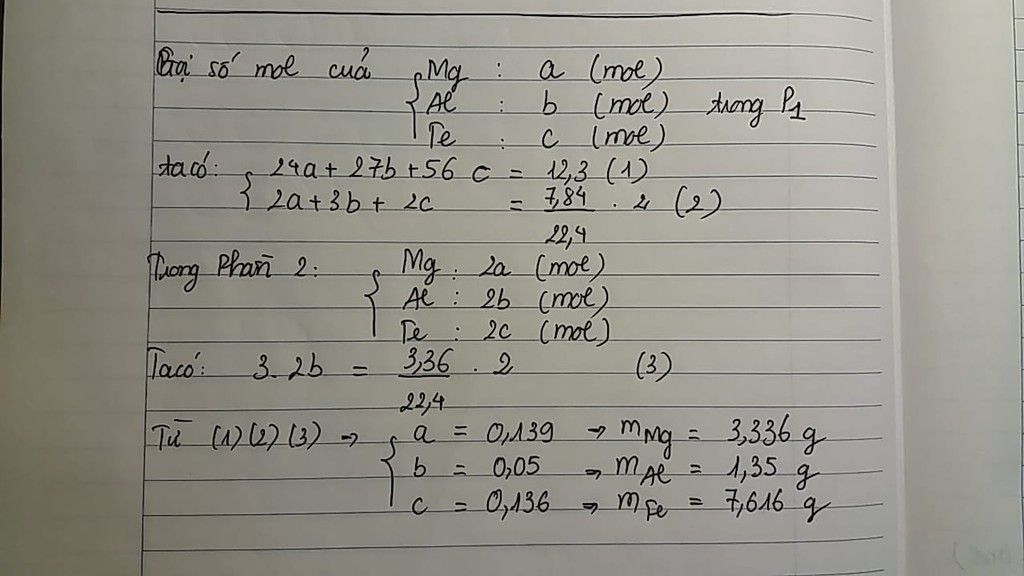 Gọi số mol của { Mg : a (mol)
Al : b (mol) trong P1
Fe : c (mol)
ta có: { 24a + 27b + 56 c = 12,3 (1)
2a + 3b + 2c = 7,84/22,4 . 2 (2)
Trong Phần 2: { Mg : 2a (mol)
Al : 2b (mol)
Fe : 2c (mol)
Ta có: 3. 2b = 3,36/22,4 . 2 (3)
Từ (1) (2) (3) → { a = 0,139 → mMg = 3,336 g
b = 0,05 → mAl = 1,35 g
c = 0,136 → mFe = 7,616 g